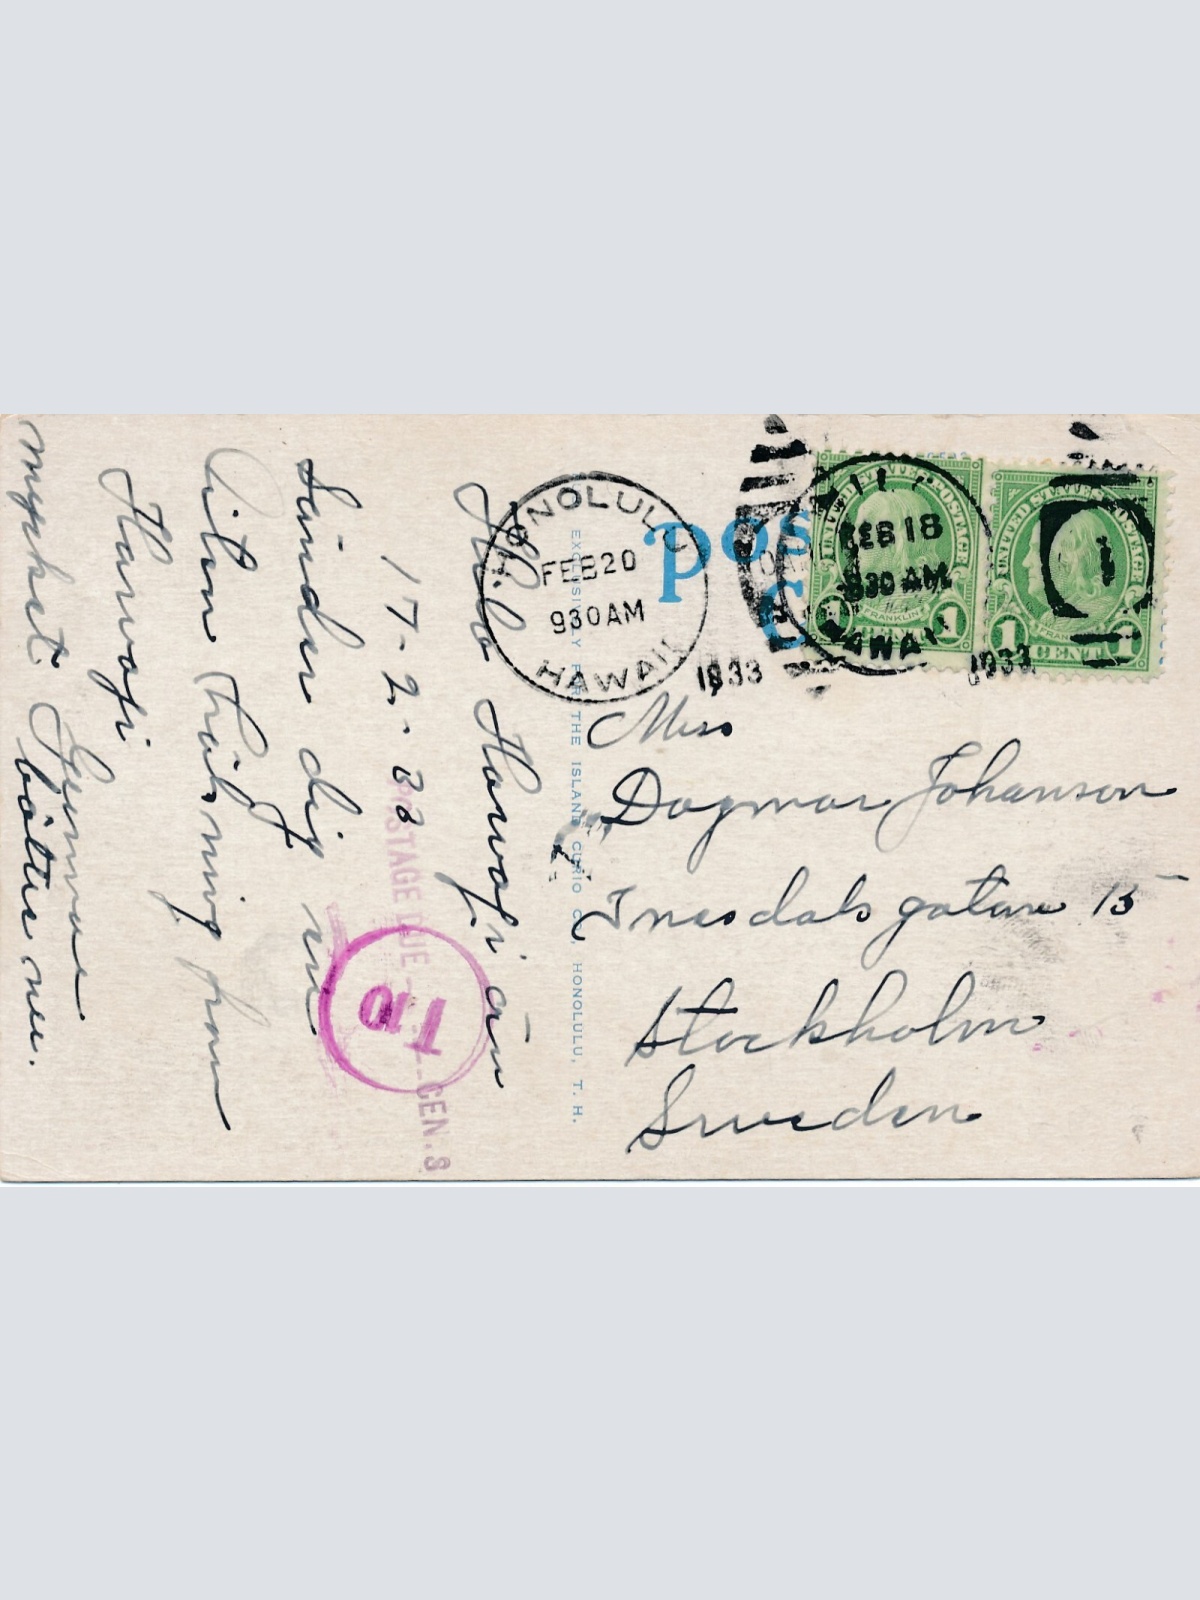 Hilo Hawafi än
17-2-33
Sänder dig en
liten hälsning från
Hawafi
Gunnar
mycket bättre nu.
EXCLUSIVELY FOR THE ISLAND CURIO CO., HONOLULU, T. H.
POS
C
HONOLULU
FEB 20
930AM
HAWAII
1933
HILO
FEB 18
830 AM
HAWAII
1933
1
UNITED STATES POSTAGE
FRANKLIN
1 CENT 1
UNITED STATES POSTAGE
FRANKLIN
1 CENT 1
Miss
Dagmar Johanson
gatan 15
Stockholm
Sweden
POSTAGE DUE CEN.S
T 10